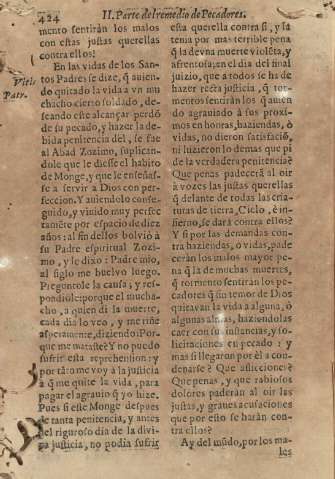 424
II. Parte del remedio de Pecadores.
mento sentiràn los malos
con estas justas querellas
contra ellos?
En las vidas de los San-
tos Padres se dize, q̃ auien-
do quitado la vida a vn mu
chacho cierto soldado, de-
seando este alcançar perdõ
de su pecado, y hazer la de-
bida penitencia del, se fue
al Abad Zozimo, suplican-
dole que le diesse el habito
de Monge, y que le enseñas-
se a seruir a Dios con per-
feccion. Y auiendolo conse-
guido, y viuido muy perfec
tamẽte por espacio de diez
años: al fin dellos bolvió a
su Padre espiritual Zozi-
mo, y le dixo: Padre mio,
al siglo me buelvo luego.
Preguntole la causa; y res-
pondiole: porque el mucha-
cho, a quien di la muerte,
cada dia lo veo, y me riñe
asperamente, diziendo: Por-
que me mataste? Y no puedo
sufrir esta reprehension: y
por tãto me voy à la justicia
à q̃ me quite la vida, para
pagar el agravio q̃ yo hize.
Pues si este Monge despues
de tanta penitencia, y antes
del riguroso dia de la divi-
na justicia, no podia sufrir
Vitis
Patr.
esta querella contra si, y la
tenia por mas terrible pena
q̃ la de vna muerte violẽta, y
afrentosa; en el dia del final
juizio, que a todos se ha de
hazer recta justicia, q̃ tor-
mentos sentiràn los q̃ auien
do agrauiado à sus proxi-
mos en honras, haziendas, ò
vidas, no dieron satisfació,
ni hizieron lo demas que pi
de la verdadera penitencia?
Que penas padecerà al oir
à vozes las justas querellas
q̃ delante de todas las cria-
turas de tierra, Cielo, è in-
fierno, se darà contra ellos?
Y si por las demandas con-
tra haziendas, ò vidas, pade
ceràn los malos mayor pe-
na q̃ la de muchas muertes,
q̃ tormento sentiràn los pe-
cadores q̃ sin temor de Dios
quitavan la vida a alguna, ò
algunas almas, haziendolas
caer con sus instancias, y so-
licitaciones en pecado: y
mas si llegaron por èl a con-
denarse? Que aflicciones?
Que penas, y que rabiosos
dolores padecràn al oir las
justas, y graues acusaciones
que por esto se haràn con-
tra ellos?
Ay del mũdo, por los ma-
les